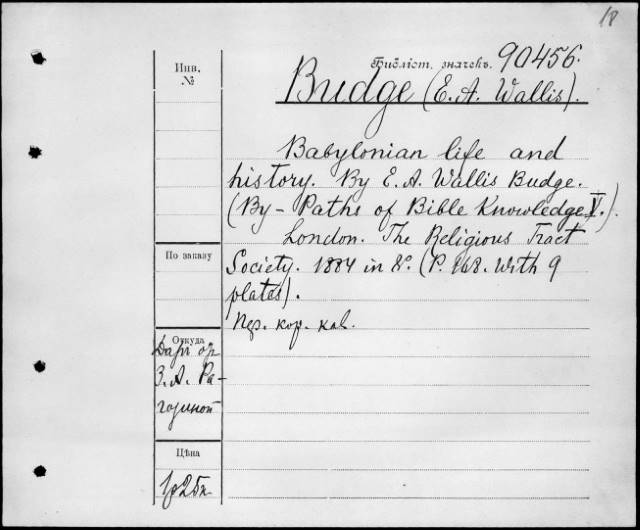 18
Библіот. значекъ. 90456.
Инв. №
Budge (E. A. Wallis).
Babylonian life and
history. By E. A. Wallis Budge.
(By-Paths of Bible Knowledge V.).
London. The Religious Tract
По заказу
Society. 1884 in 8°. (P. 168. With 9
plates).
Пер. кор. кал.
Откуда
Даръ
З. А. Ра-
гозиной
Цѣна
1р 25к